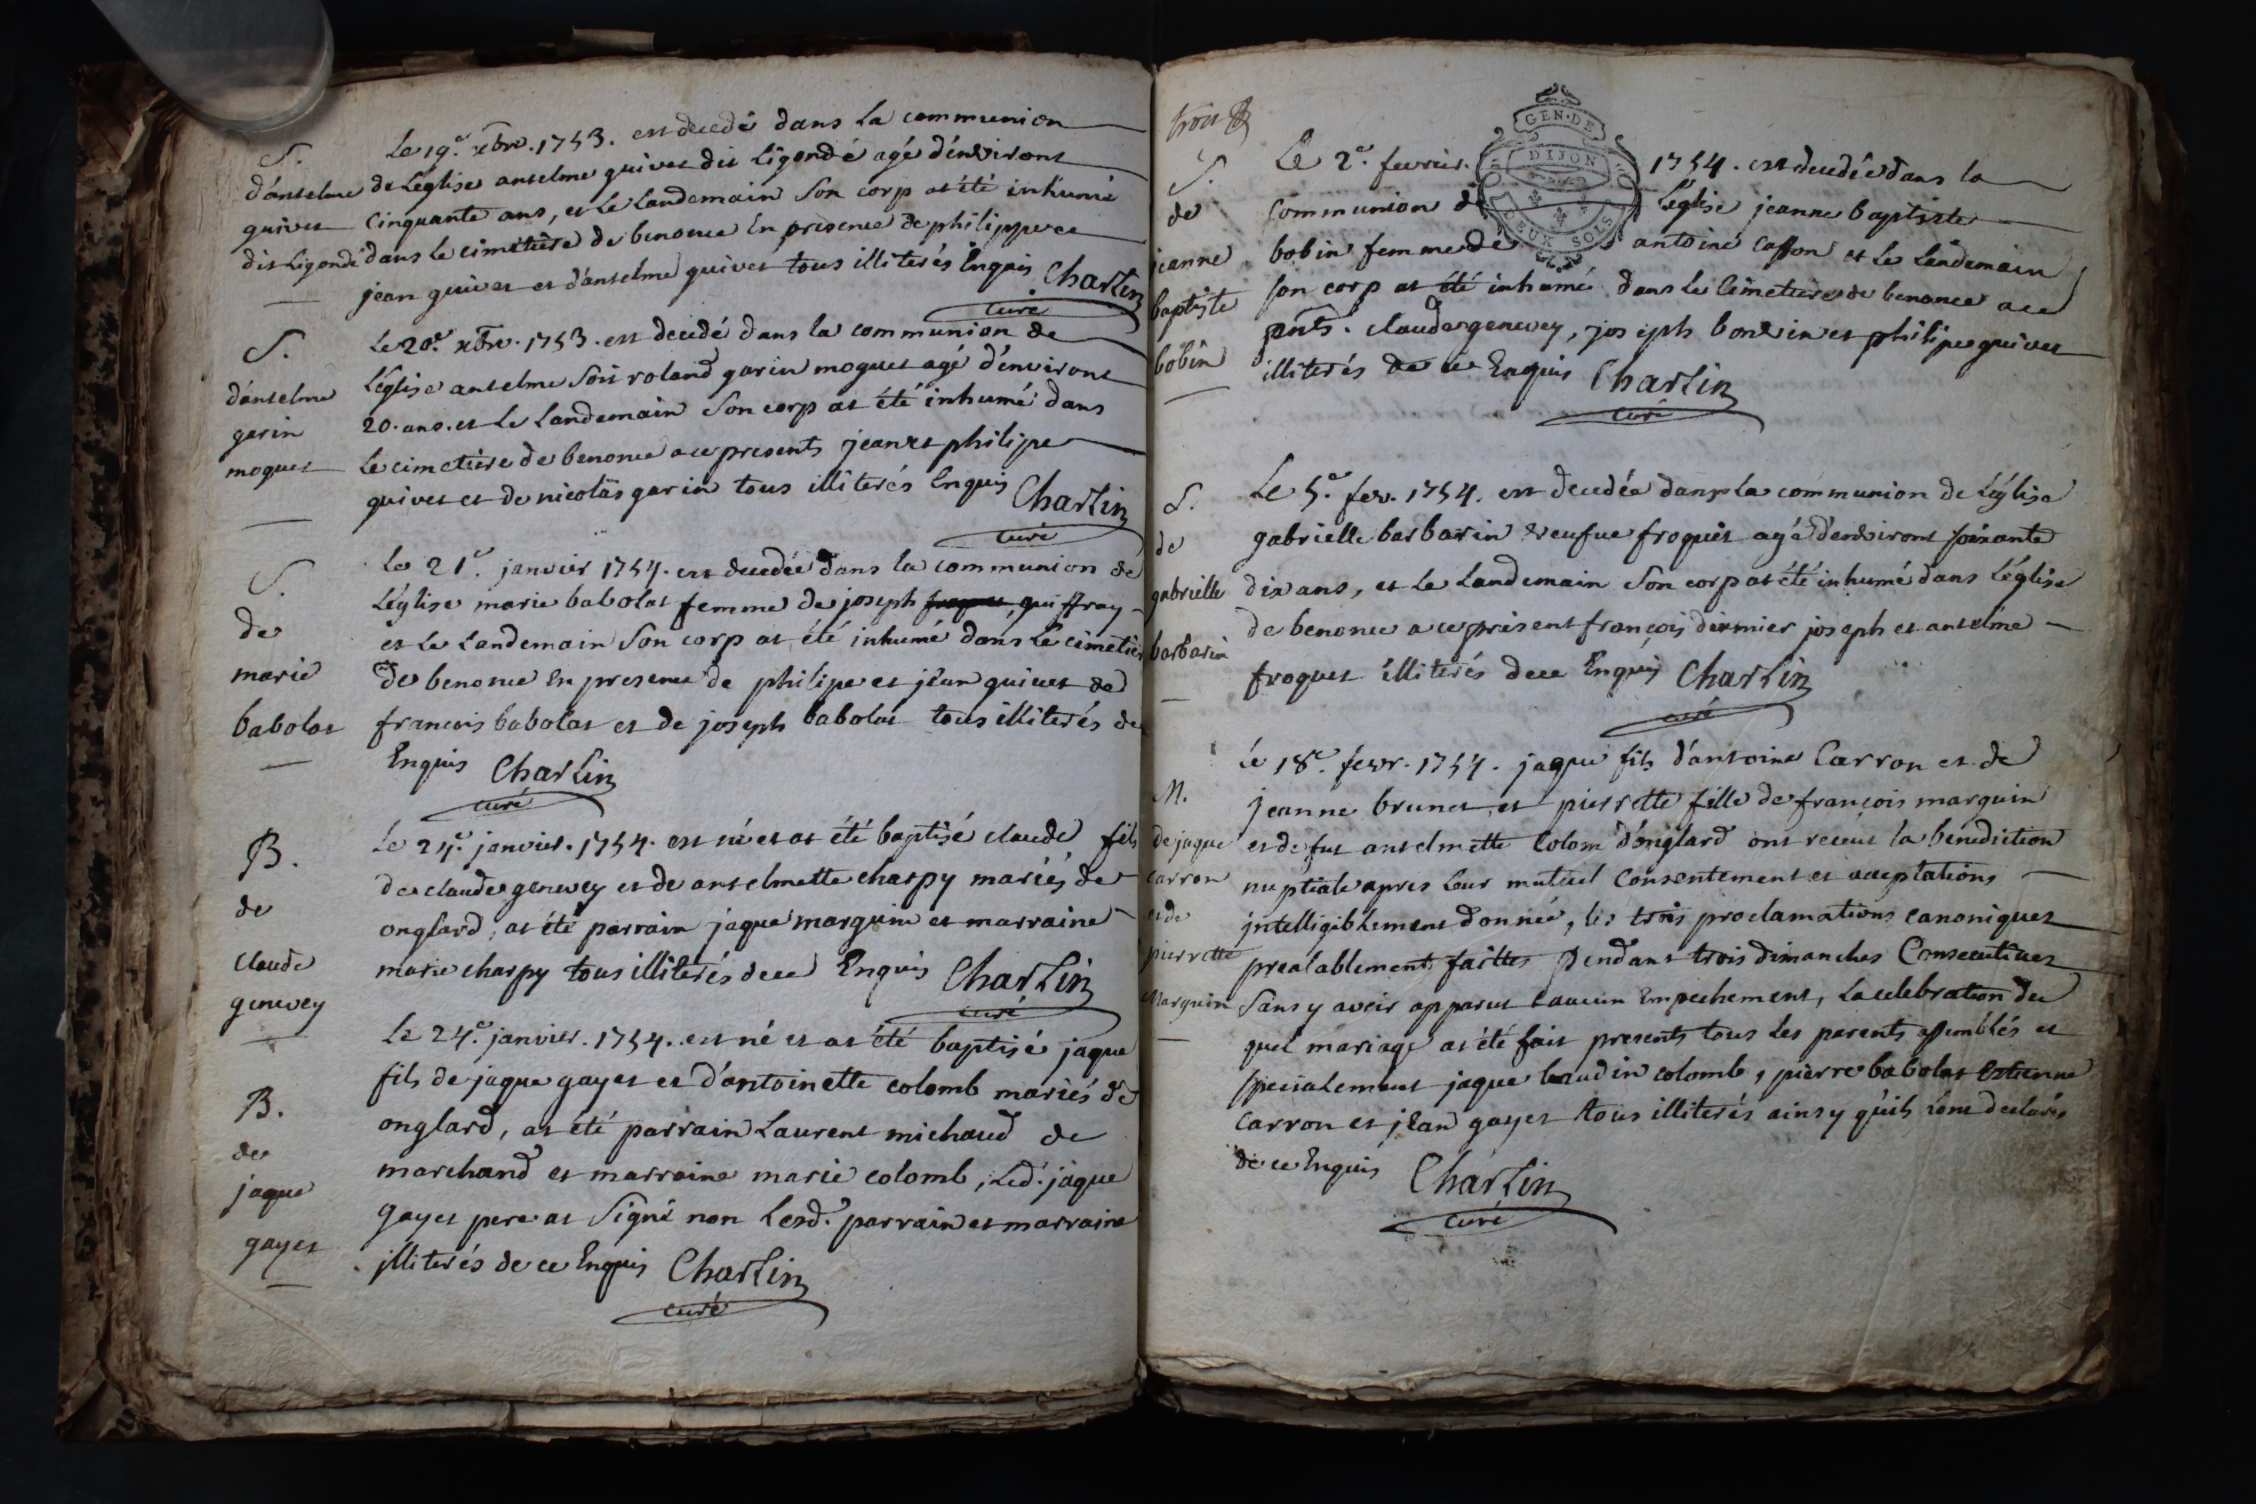 S.
d'anselme
quivet
dit Ligondé
Le 19.e xbre. 1753. est decedé dans la communion
de Léglise anselme quivet dit Ligondé agé d'environt
cinquante ans, et le landemain son corp at été inhumé
dans le cimetiere de benonce En presence de philippe et
jean quivet et d'anselme quivet tous illiterés Enquis Charlin
curé
S.
d'anselme
garin
moquet
Le 20.e xbre. 1753. est decedé dans la communion de
Léglise anselme fils roland garin moquet agé d'environt
20. ans. et le landemain son corp at été inhumé dans
le cimetiere de benonce a ce presents jean et philipe
quivet et de nicolas garin tous illiterés Enquis Charlin
curé
S.
de
marie
babolat
Le 21.e janvier 1754. est decedée dans la communion de
Léglise marie babolat femme de joseph guiffray
et le landemain son corp at été inhumé dans le cimetier
de benonce En presence de philipe et jean quivet de
francois babolat et de joseph babolat tous illiterés de
Enquis Charlin
curé
B.
de
claude
genevey
Le 24.e janvier. 1754. est né et at été baptisé claude fils
de claude genevey et de anselmette charpy mariés de
onglard, at été parrain jaque marguin et marraine
marie charpy tous illiterés de ce Enquis Charlin
curé
B.
de
jaque
gayet
Le 24.e janvier. 1754. est né et at été baptisé jaque
fils de jaque gayet et d'antoinette colomb mariés de
onglard, at été parrain Laurent michaud de
marchand et marraine marie colomb, Led. jaque
gayet pere at signé non Lesd. parrain et marraine
illiterés de ce Enquis Charlin
curé
trois
GEN. DE
DIJON
DEUX SOLS
S.
de
jeanne
baptiste
bobin
Le 2.e fevrier. 1754. est decedée dans la
communion de Léglise jeanne baptiste
bobin femme de antoine Casson et le landemain
son corp at été inhumé dans le Cimetiere de benonce a ce
pnts. claude genevey, joseph bonvin et philipe quivet
illiterés de ce Enquis Charlin
curé
S.
de
gabrielle
barbarin
Le 5.e fev. 1754. est decedée dans la communion de Léglise
gabrielle barbarin veufue froquet agé d'environt soixante
dix ans, et le landemain son corp at été inhumé dans Léglise
de benonce a ce présent françois dirmier joseph et anselme
froquet illiterés de ce Enquis Charlin
curé
M.
de jaque
carron
et de
pierrette
Marguin
Le 18.e fevr. 1754. jaque fils d'antoine Carron et de
jeanne brunet, et pierrette fille de françois marguin
et de fut anselmette Colom d'onglard ont receut la benediction
nuptiale apres leur mutuel Consentement et acceptations
intelligiblement donnée, les trois proclamations canoniquet
prealablement faittes Pendant trois dimanches Consecutives
Sans y avoir apparut eaucun Empechement, La celebration du
quel mariage at été fait presents tous les parents assemblés et
specialement jaque baudin colomb, pierre babolat Estienne
Carron et jean gayet tous illiterés ainsy qu'ils l'ont declarés
de ce Enquis Charlin
curé